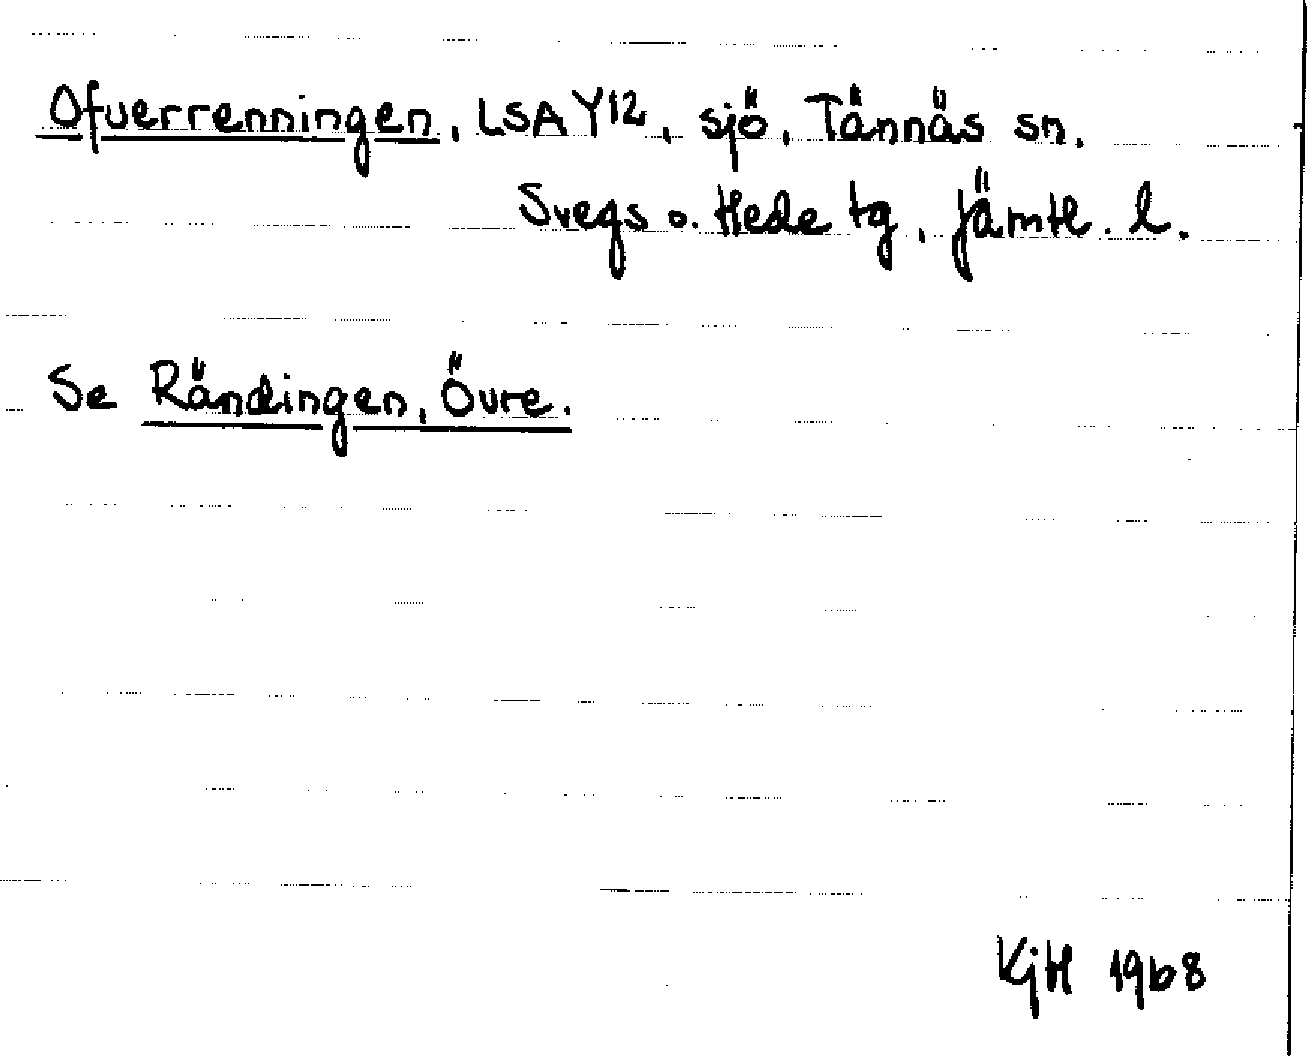 Ofverrenningen, LSA Y12, sjö, Tännäs sn.
Svegs o. Hede tg, Jämtl. l.
Se Rändingen, Övre.
KjH 1968